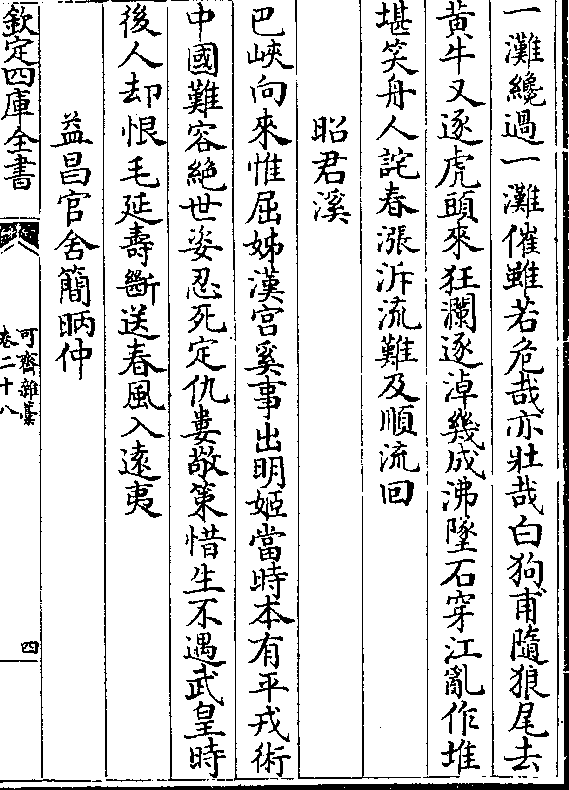 一灘纔過一灘催雖若危哉亦壯哉白狗甫隨狼尾去
黃牛又逐虎頭來狂瀾逐淖幾成沸墜石穿江亂作堆
堪笑舟人詫春漲泝流難及順流回
昭君溪
巴峽向來惟屈姊漢宫奚事出明姬當時本有平戎術
中國難容絶世姿忍死定仇婁敬策惜生不遇武皇時
後人却恨毛延壽斷送春風入遠夷
益昌官舍簡昞仲
欽定四庫全書
可齋雜藁
卷二十八
四